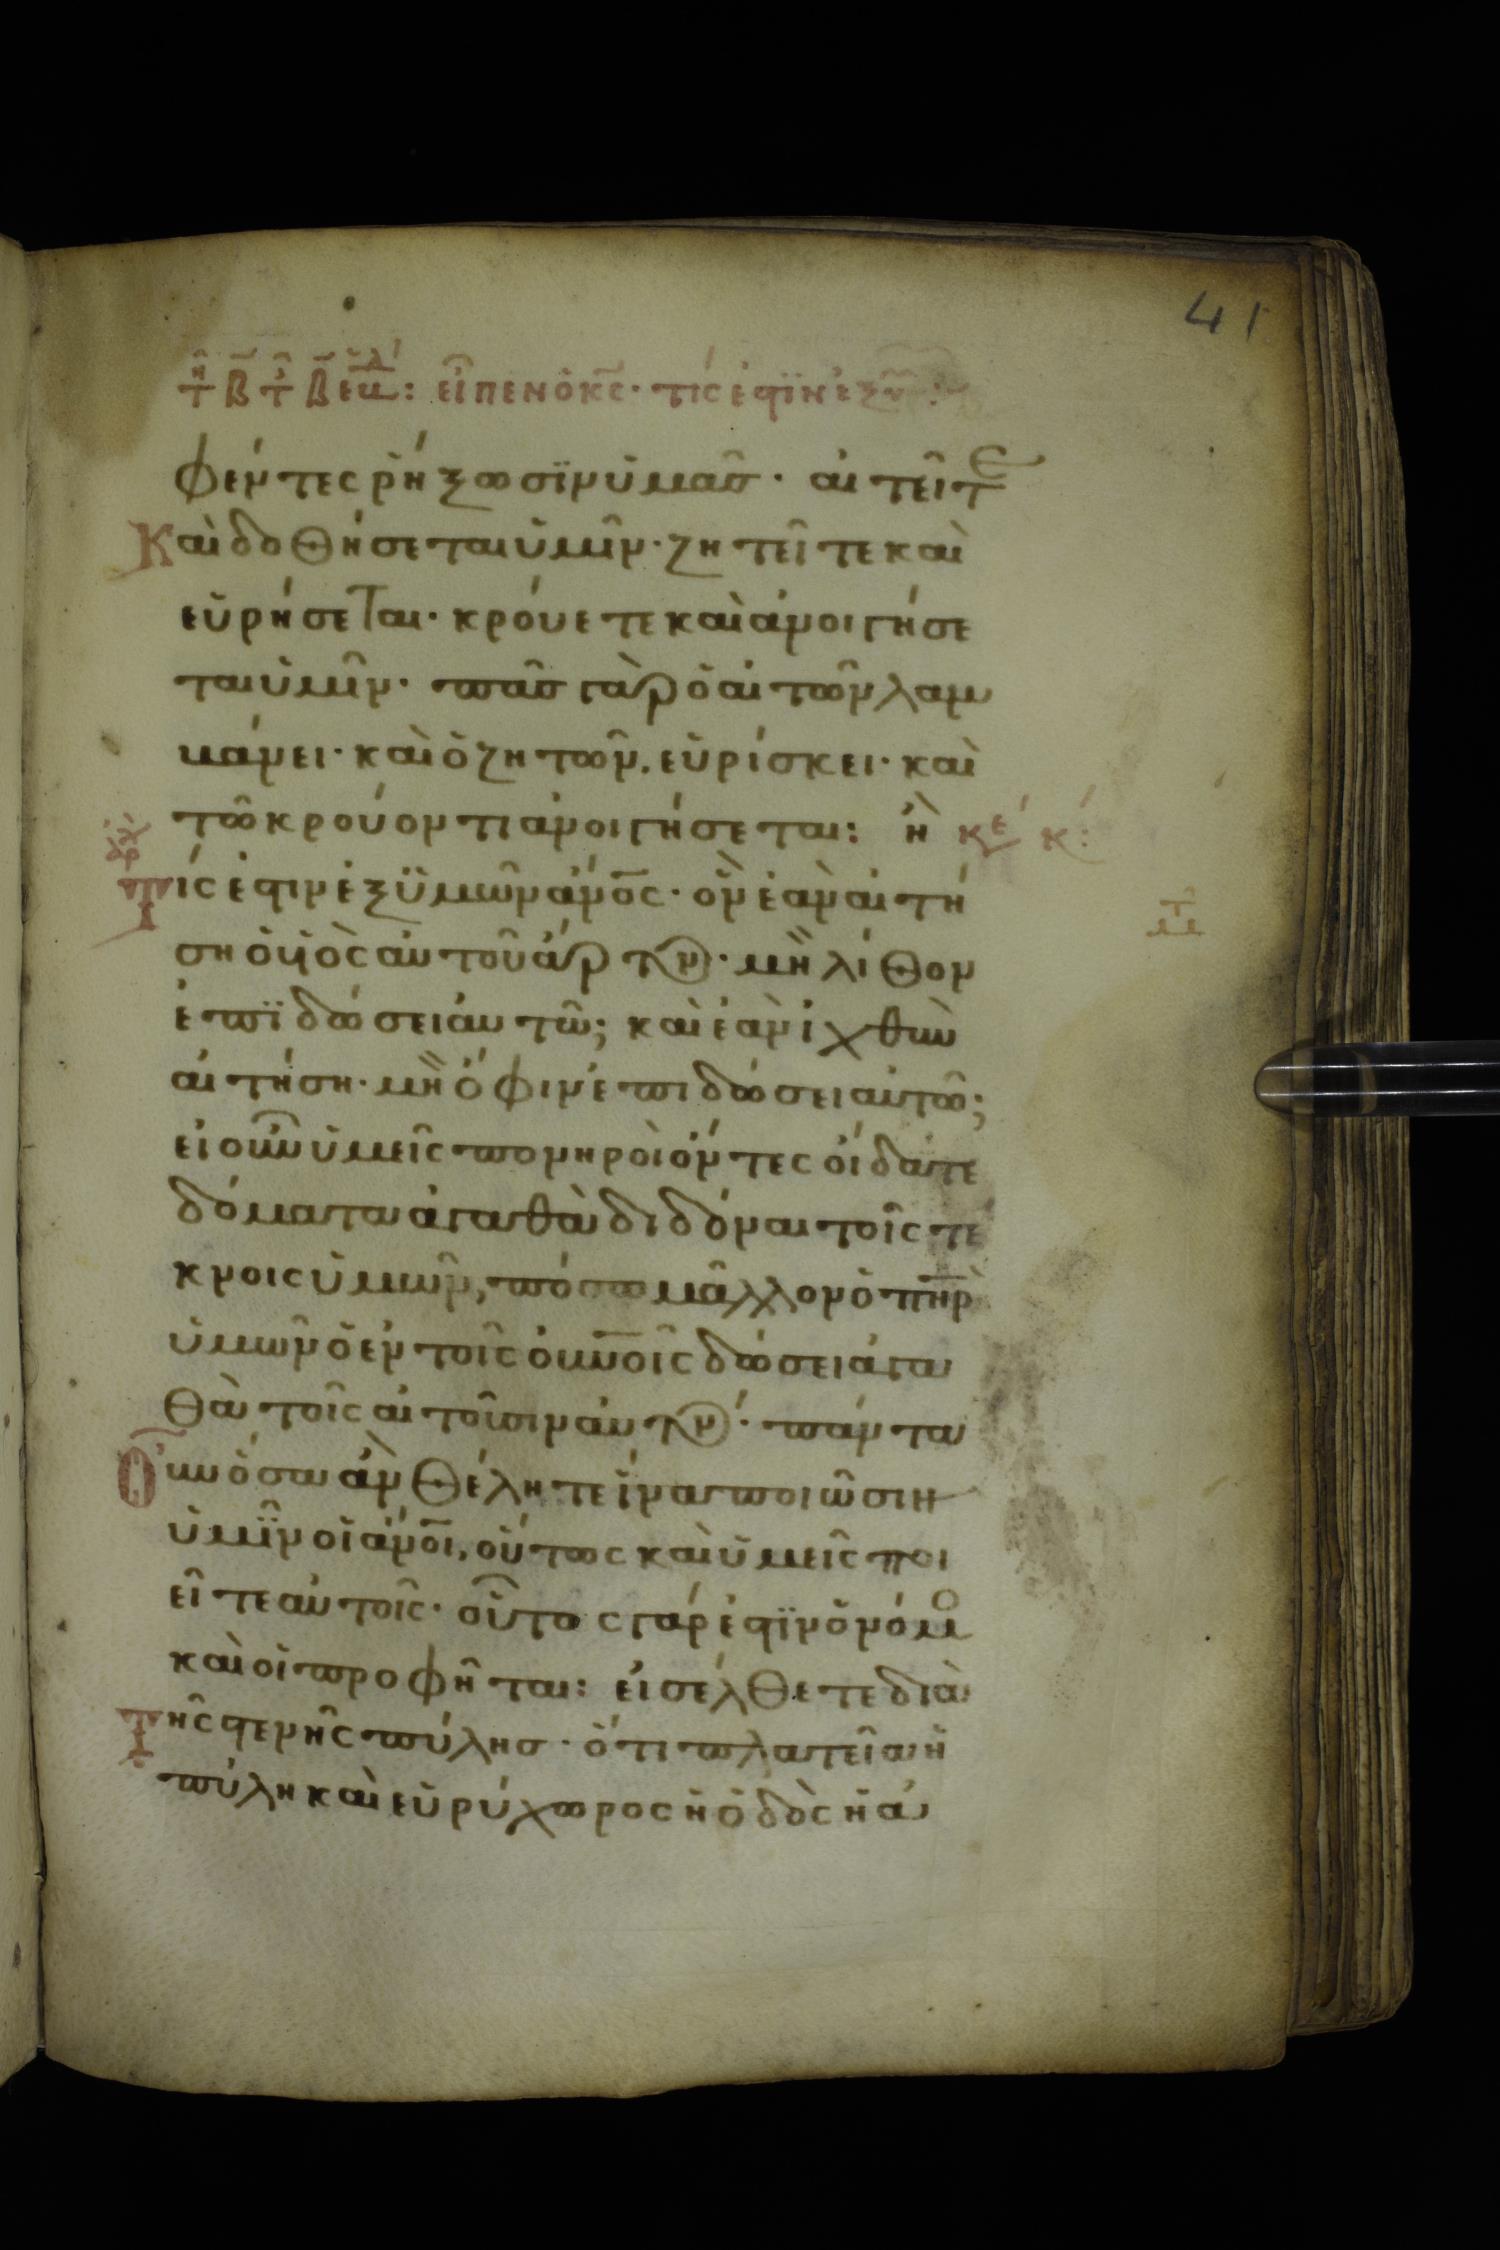 41
τῆ β̅ τ̑ β̅ εβδ: εἶπεν ὁ κ̅ς̅· τίς ἐστϊν ἐξ
φέντες ῥήξωσϊν ὑμᾶς· αἰτεῖτε
Καὶ δοθήσεται ὑμῖν· ζητεῖτε καὶ
εὑρήσεται· κρόυετε καὶ ἀνοιγήσε
ται ὑμῖν· πᾶς γὰρ ὁ αἰτῶν λαμ
βάνει· καὶ ὁ ζητῶν, εὑρίσκει· καὶ
τῶ κρούοντι ἀνοιγήσεται: ἢ κέ κ:
αρχ
Τίς ἐστιν ἐξ ϋμῶν ἄν̅ο̅ς̅· ὃν ἐὰν αἰτή
ση ὁ υἱὸς αὐτοῦ ἄρτον· μὴ λίθον
ἐπϊδώσει ἀυτῶ; καὶ ἐὰν ἰχθὺν
αἰτήση· μὴ ὄφιν ἐπιδώσει αὐτῶ;
εἰ οὖν ὑμεῖς πονηροὶ ὄντες οἴδατε
δόματα ἀγαθὰ διδόναι τοῖς τέ
κνοις ὑμῶν, πόσω μᾶλλον ὁ π̅η̅ρ̅
ὑμῶν ὁ ἐν τοῖς ο̅υ̅ν̅οῖς δώσει ἀγα
θὰ τοῖς αἰτοῦσιν αὐτόν· πάντα
Οὖν ὅσα ἂν θέλητε ἵνα ποιῶσιν
ὑμῖν οἱ ἄν̅ο̅ι̅, οὕτως καὶ ὑμεῖς ποι
εῖτε αὐτοῖς· οὗτος γάρ ἐστϊν ὁ νόμο
καὶ οἱ προφῆται: εἰσέλθετε διὰ
Τῆς στενῆς πύλης· ὅτι πλατεῖα ἡ
πύλη καὶ εὐρύχωρος ἡ ὁδὸς ἡ ἀ